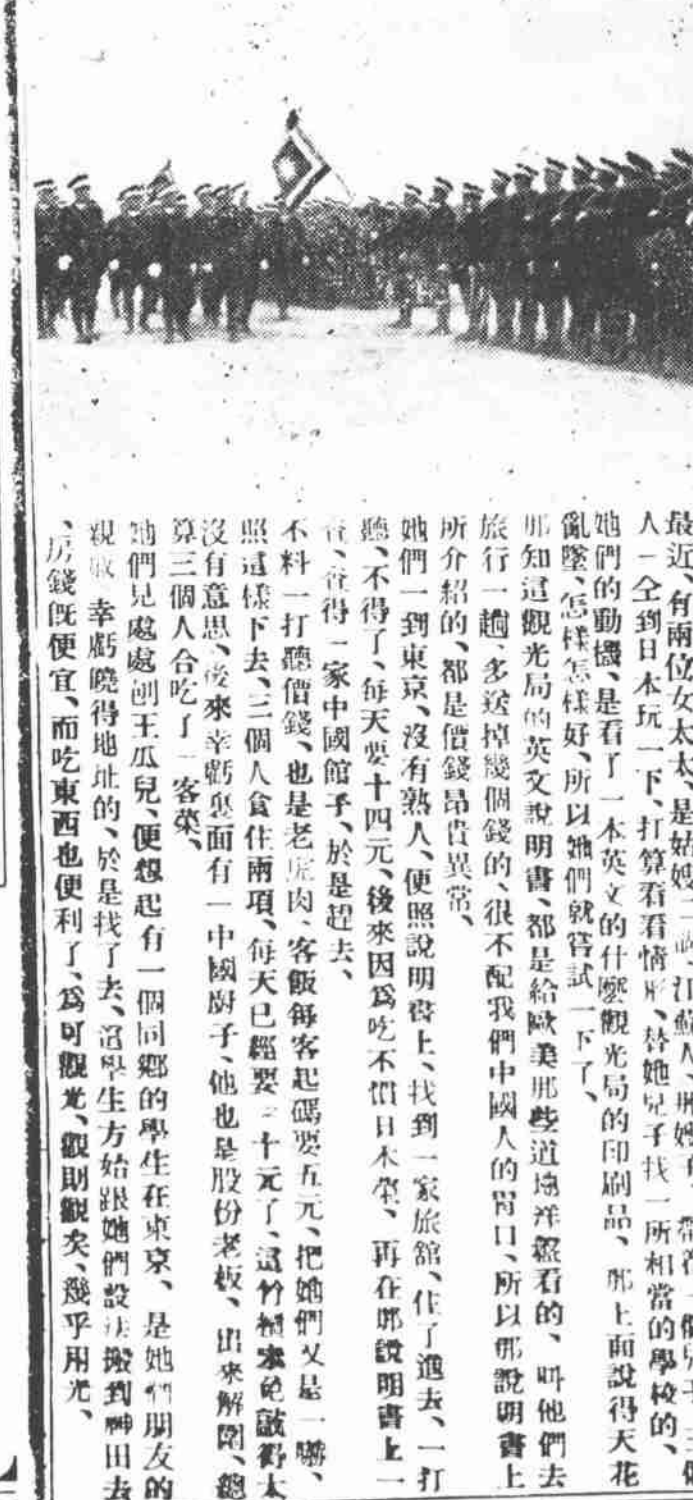 最近、有兩位女太太、是姑嫂二人、江蘇人、那嫂子、帶着一個兒子、三個
人一仝到日本玩一下、打算看看情形、替她兒子找一所相當的學校的、
她們的動機、是看了一本英文的什麼觀光局的印刷品、那上面說得天花
亂墜、怎樣怎樣好、所以她們就嘗試一下了、
那知這觀光局的英文說明書、都是給歐美那些道地洋盤看的、叫他們去
旅行一趟、多送掉幾個錢的、很不配我們中國人的胃口、所以那說明書上
所介紹的、都是價錢昂貴異常、
她們一到東京、沒有熟人、便照說明書上、找到一家旅館、住了進去、一打
聽、不得了、每天要十四元、後來因爲吃不慣日本菜、再在那說明書上一
查、查得一家中國館子、於是趕去、
不料一打聽價錢、也是老虎肉、客飯每客起碼要五元、把她們又是一嚇、
照這樣下去、三個人食住兩項、每天已經要二十元了、這竹槓未免敲得太
沒有意思、後來幸虧裏面有一中國廚子、他也是股份老板、出來解圍、總
算三個人合吃了一客菜、
她們見處處刨王瓜兒、便想起有一個同鄉的學生在東京、是她們朋友的
親戚、幸虧曉得地址的、於是找了去、這學生方始跟她們設法搬到神田去
、房錢旣便宜、而吃東西也便利了、爲可觀光、觀則觀矣、幾乎用光、